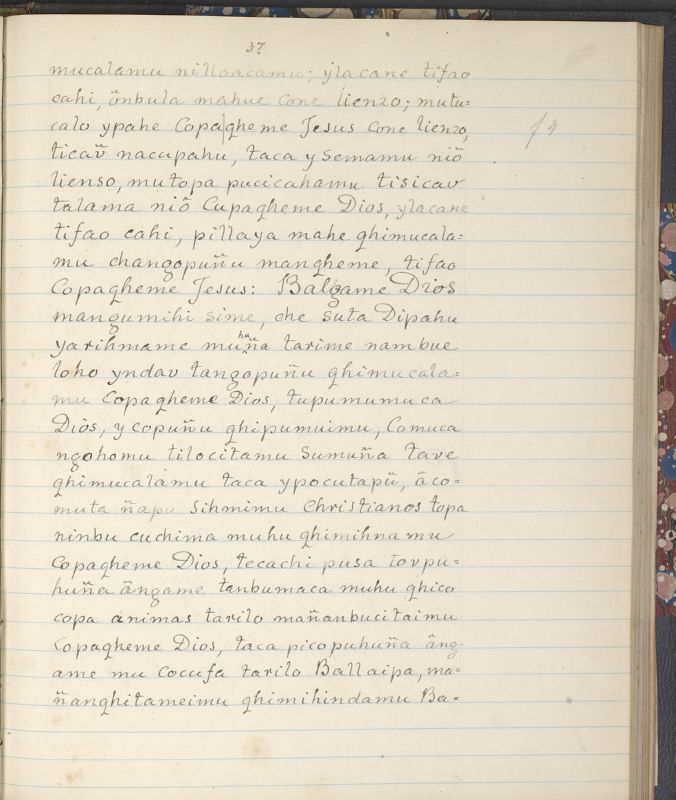 37
mucalamu nillaacamu; ylacane tifao
cahi, õnbula mahue cone lienzo; mutu=
calo ypahe Copaqheme Jesus cone lienzo,
ticaṽ nacupahu, taca y semamu niõ
lienso, mutopa pucicahamu tisicav
talama niõ Cupaqheme Dios, ylacane
tifao cahi, pillaya mahe qhimucala=
mu changopuñu manqheme, tifao
Copaqheme Jesus: Balgame Dios
mangumihi sime, che suta Dipahu
yarihmame muhuña tarime nambue
loho yndav tangopuñu qhimucala=
mu Copaqheme Dios, tupumumuca
Dios, y copuñu qhipumuimu, Comuca
ngohomu tilocitamu sumuña tave
qhimucalamu taca ypocutapũ, ãco=
muta ñapu Sihmimu Christianos topa
ninbu cuchima muhu qhimihnamu
Copaqheme Dios, tecachi pusa tovpu=
huña ãngame tenbumaca muhu qhico
copa animas tarilo mañanbucitaimu
Copaqheme Dios, taca picopuhuña ãng-
ame mu Cocufa tarilo Ballaipa, ma=
ñanqhitameimu qhimihindamu Ba=